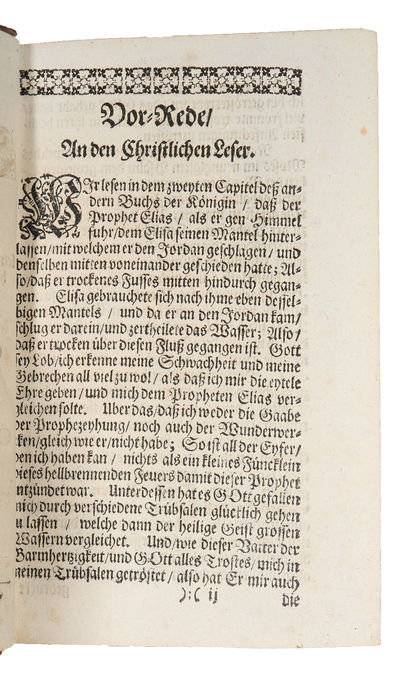 Vor-Rede/
An den Christlichen Leser.
WIr lesen in dem zweyten Capitel deß an-
dern Buchs der Königin / daß der
Prophet Elias / als er gen Himmel
fuhr/dem Elisa seinen Mantel hinter-
lassen/mit welchem er den Jordan geschlagen / und
denselben mitten voneinander geschieden hatte; Al-
so/daß er trockenes Fusses mitten hindurch gegan-
gen. Elisa gebrauchete sich nach ihme eben dessel-
bigen Mantels / und da er an den Jordan kam/
schlug er darein/und zertheilete das Wasser; Also/
daß er trocken über diesen Fluß gegangen ist. Gott
sey Lob/ich erkenne meine Schwachheit und meine
Gebrechen all viel zu wol/ als daß ich mir die eytele
Ehre geben / und mich dem Propheten Elias ver-
gleichen solte. Uber das/daß ich weder die Gaabe
der Prophezeyhung/ noch auch der Wunderwer-
ken/gleich wie er/nicht habe; So ist all der Eyfer/
den ich haben kan / nichts als ein kleines Füncklein
dieses hellbrennenden Feuers damit dieser Prophet
ntzündet war. Unterdessen hat es GOtt gefallen
mich durch verschiedene Trübsalen glücklich gehen
u lassen / welche dann der heilige Geist grossen
Wassern vergleichet. Und/wie dieser Vatter der
Barmhertzigkeit/und GOtt alles Trostes/mich in
meinen Trübsalen getröstet / also hat Er mir auch
):( ij
die